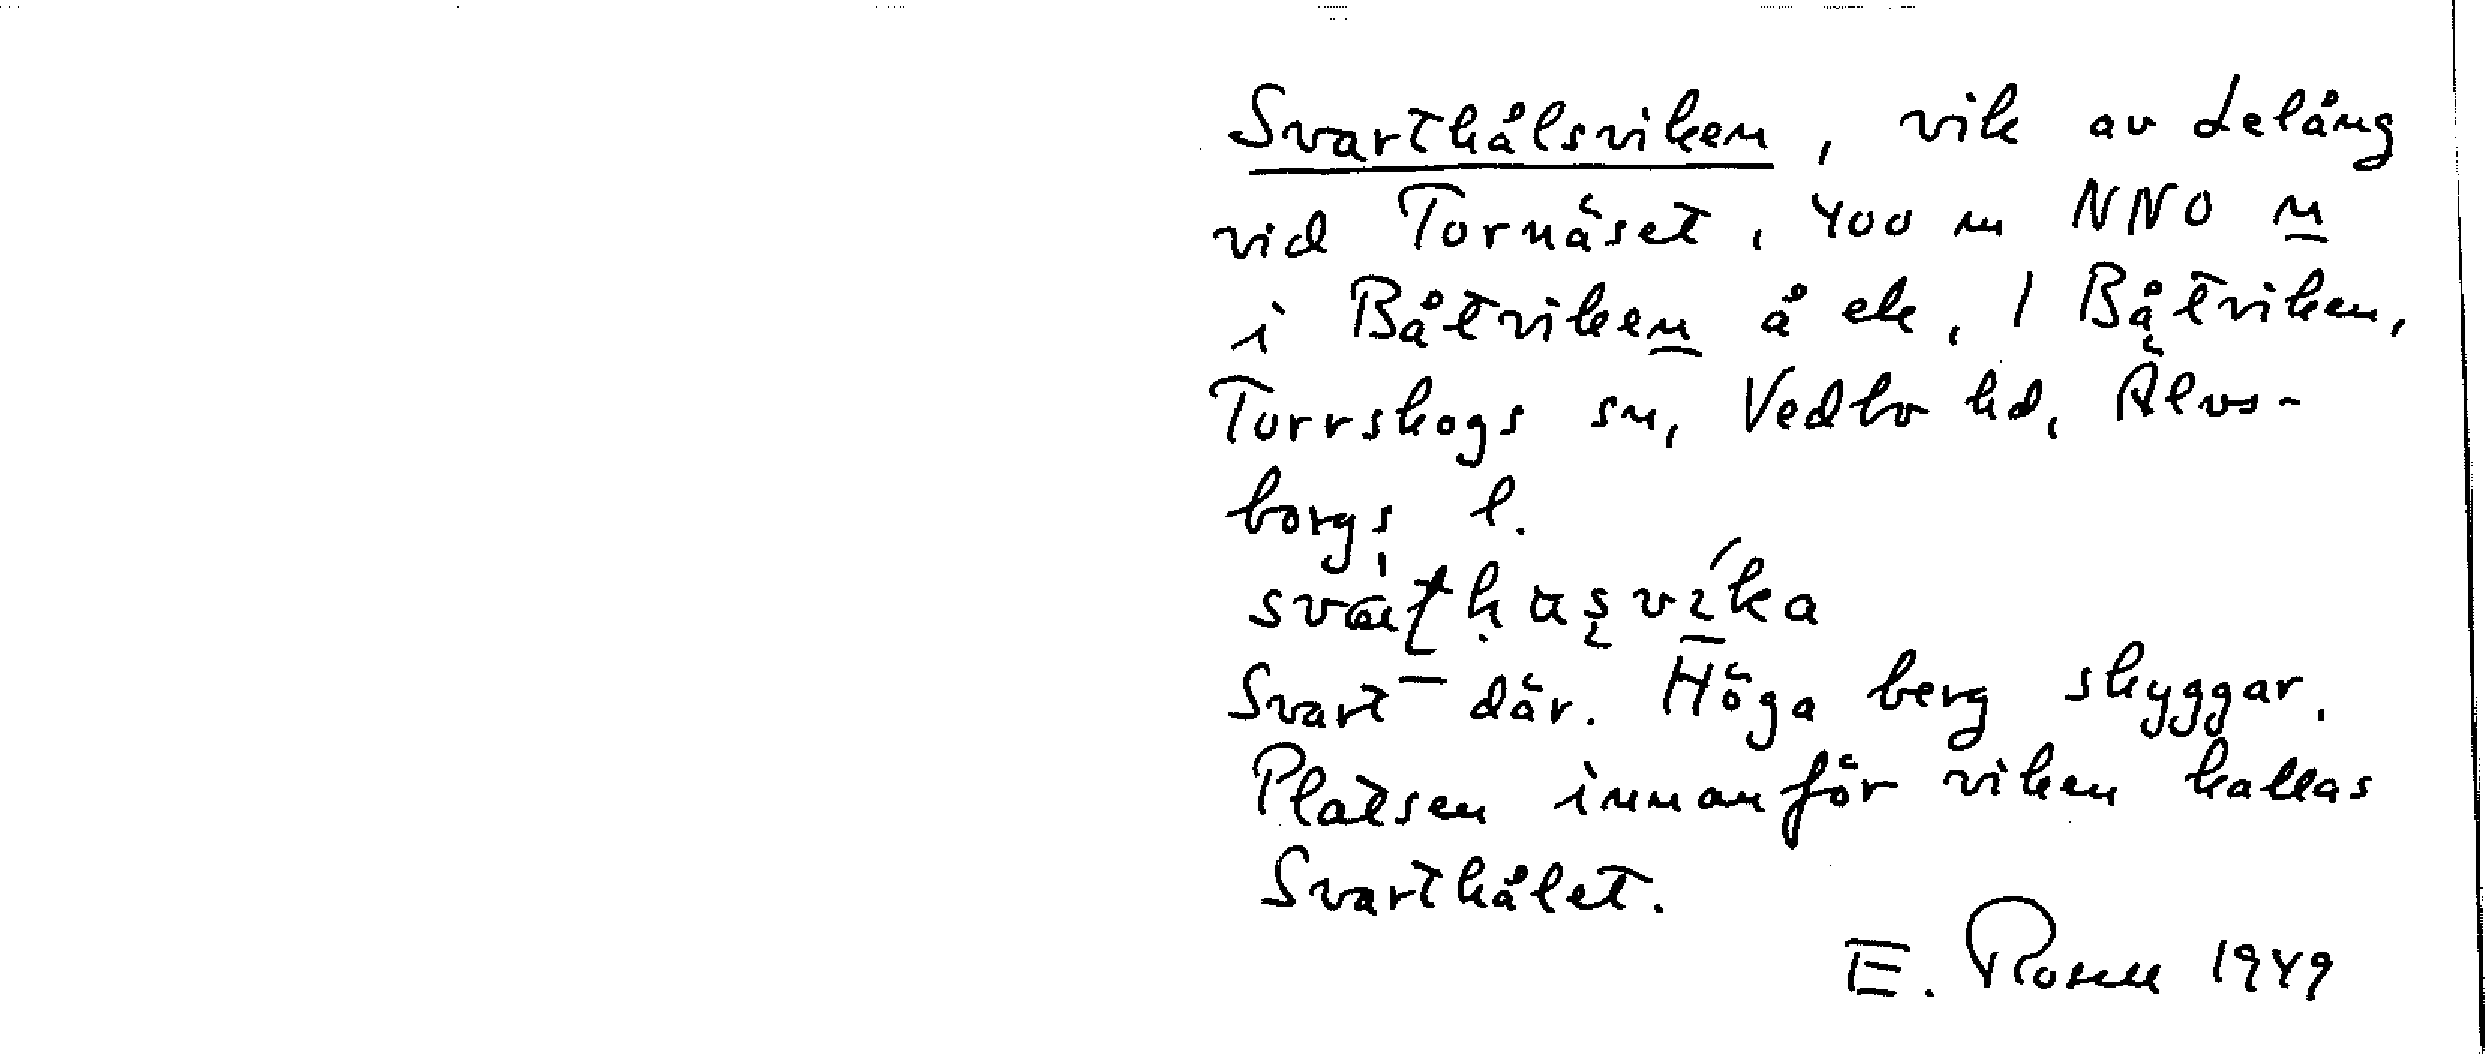 Svarthålsviken, vik av Lelång
vid Tornäset, 400 m NNO n
i Båtviken å ek, 1 Båtviken,
Torrskogs sn, Vedbo hd, Älvs-
borgs l.
Svart där. Höga berg skyggar.
Platsen innanför viken kallas
Svarthålet.
E. Rosell 1949